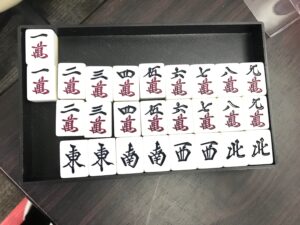 一萬
一萬 二萬 三萬 四萬 伍萬 六萬 七萬 八萬 九萬
二萬 三萬 四萬 伍萬 六萬 七萬 八萬 九萬
東 東 南 南 西 西 北 北